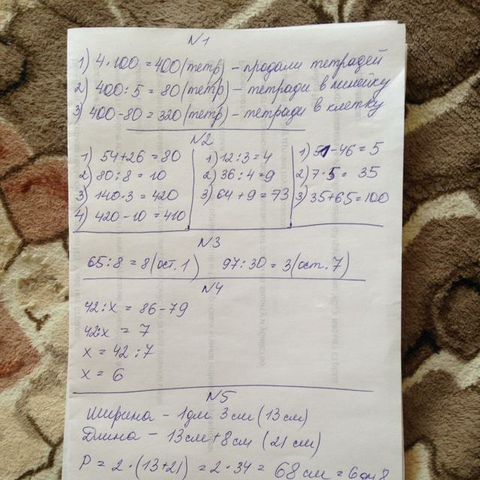 N1
1) 4·100 = 400 (тетр) – продали тетрадей
2) 400:5 = 80 (тетр) – тетради в линейку
3) 400-80 = 320 (тетр) – тетради в клетку
N2
1) 54+26 = 80
2) 80:8 = 10
3) 140·3 = 420
4) 420-10 = 410
1) 12:3 = 4
2) 36:4 = 9
3) 64+9 = 73
1) 51-46 = 5
2) 7·5 = 35
3) 35+65 = 100
N3
65:8 = 8 (ост. 1) 97:30 = 3 (ост. 7)
N4
42:x = 86-79
42:x = 7
x = 42:7
x = 6
N5
Ширина – 1дм 3см (13см)
Длина – 13см+8см (21см)
P = 2·(13+21) = 2·34 = 68см = 6дм8